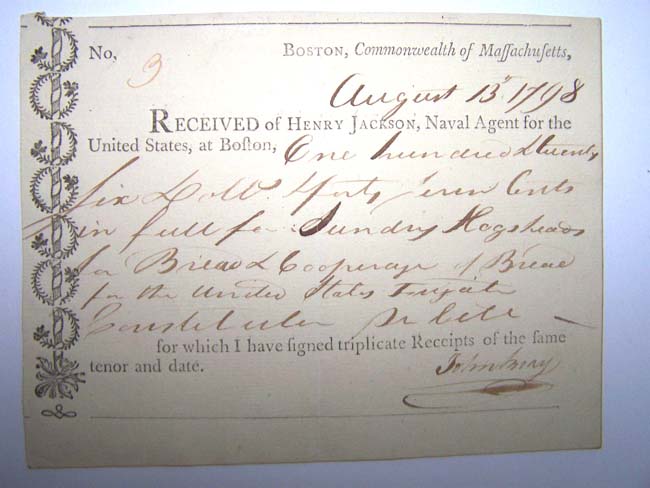 No. 3 BOSTON, Commonwealth of Maſſachuſetts,
August 13th 1798
RECEIVED of HENRY JACKSON, Naval Agent for the
United States, at Boſton, One hundred & twenty
six Dolls. forty seven Cents
in full for Sundry Hogsheads
for Bread & Cooperage of Bread
for the United States Frigate
Constitution
for which I have ſigned triplicate Receipts of the ſame
tenor and date. John